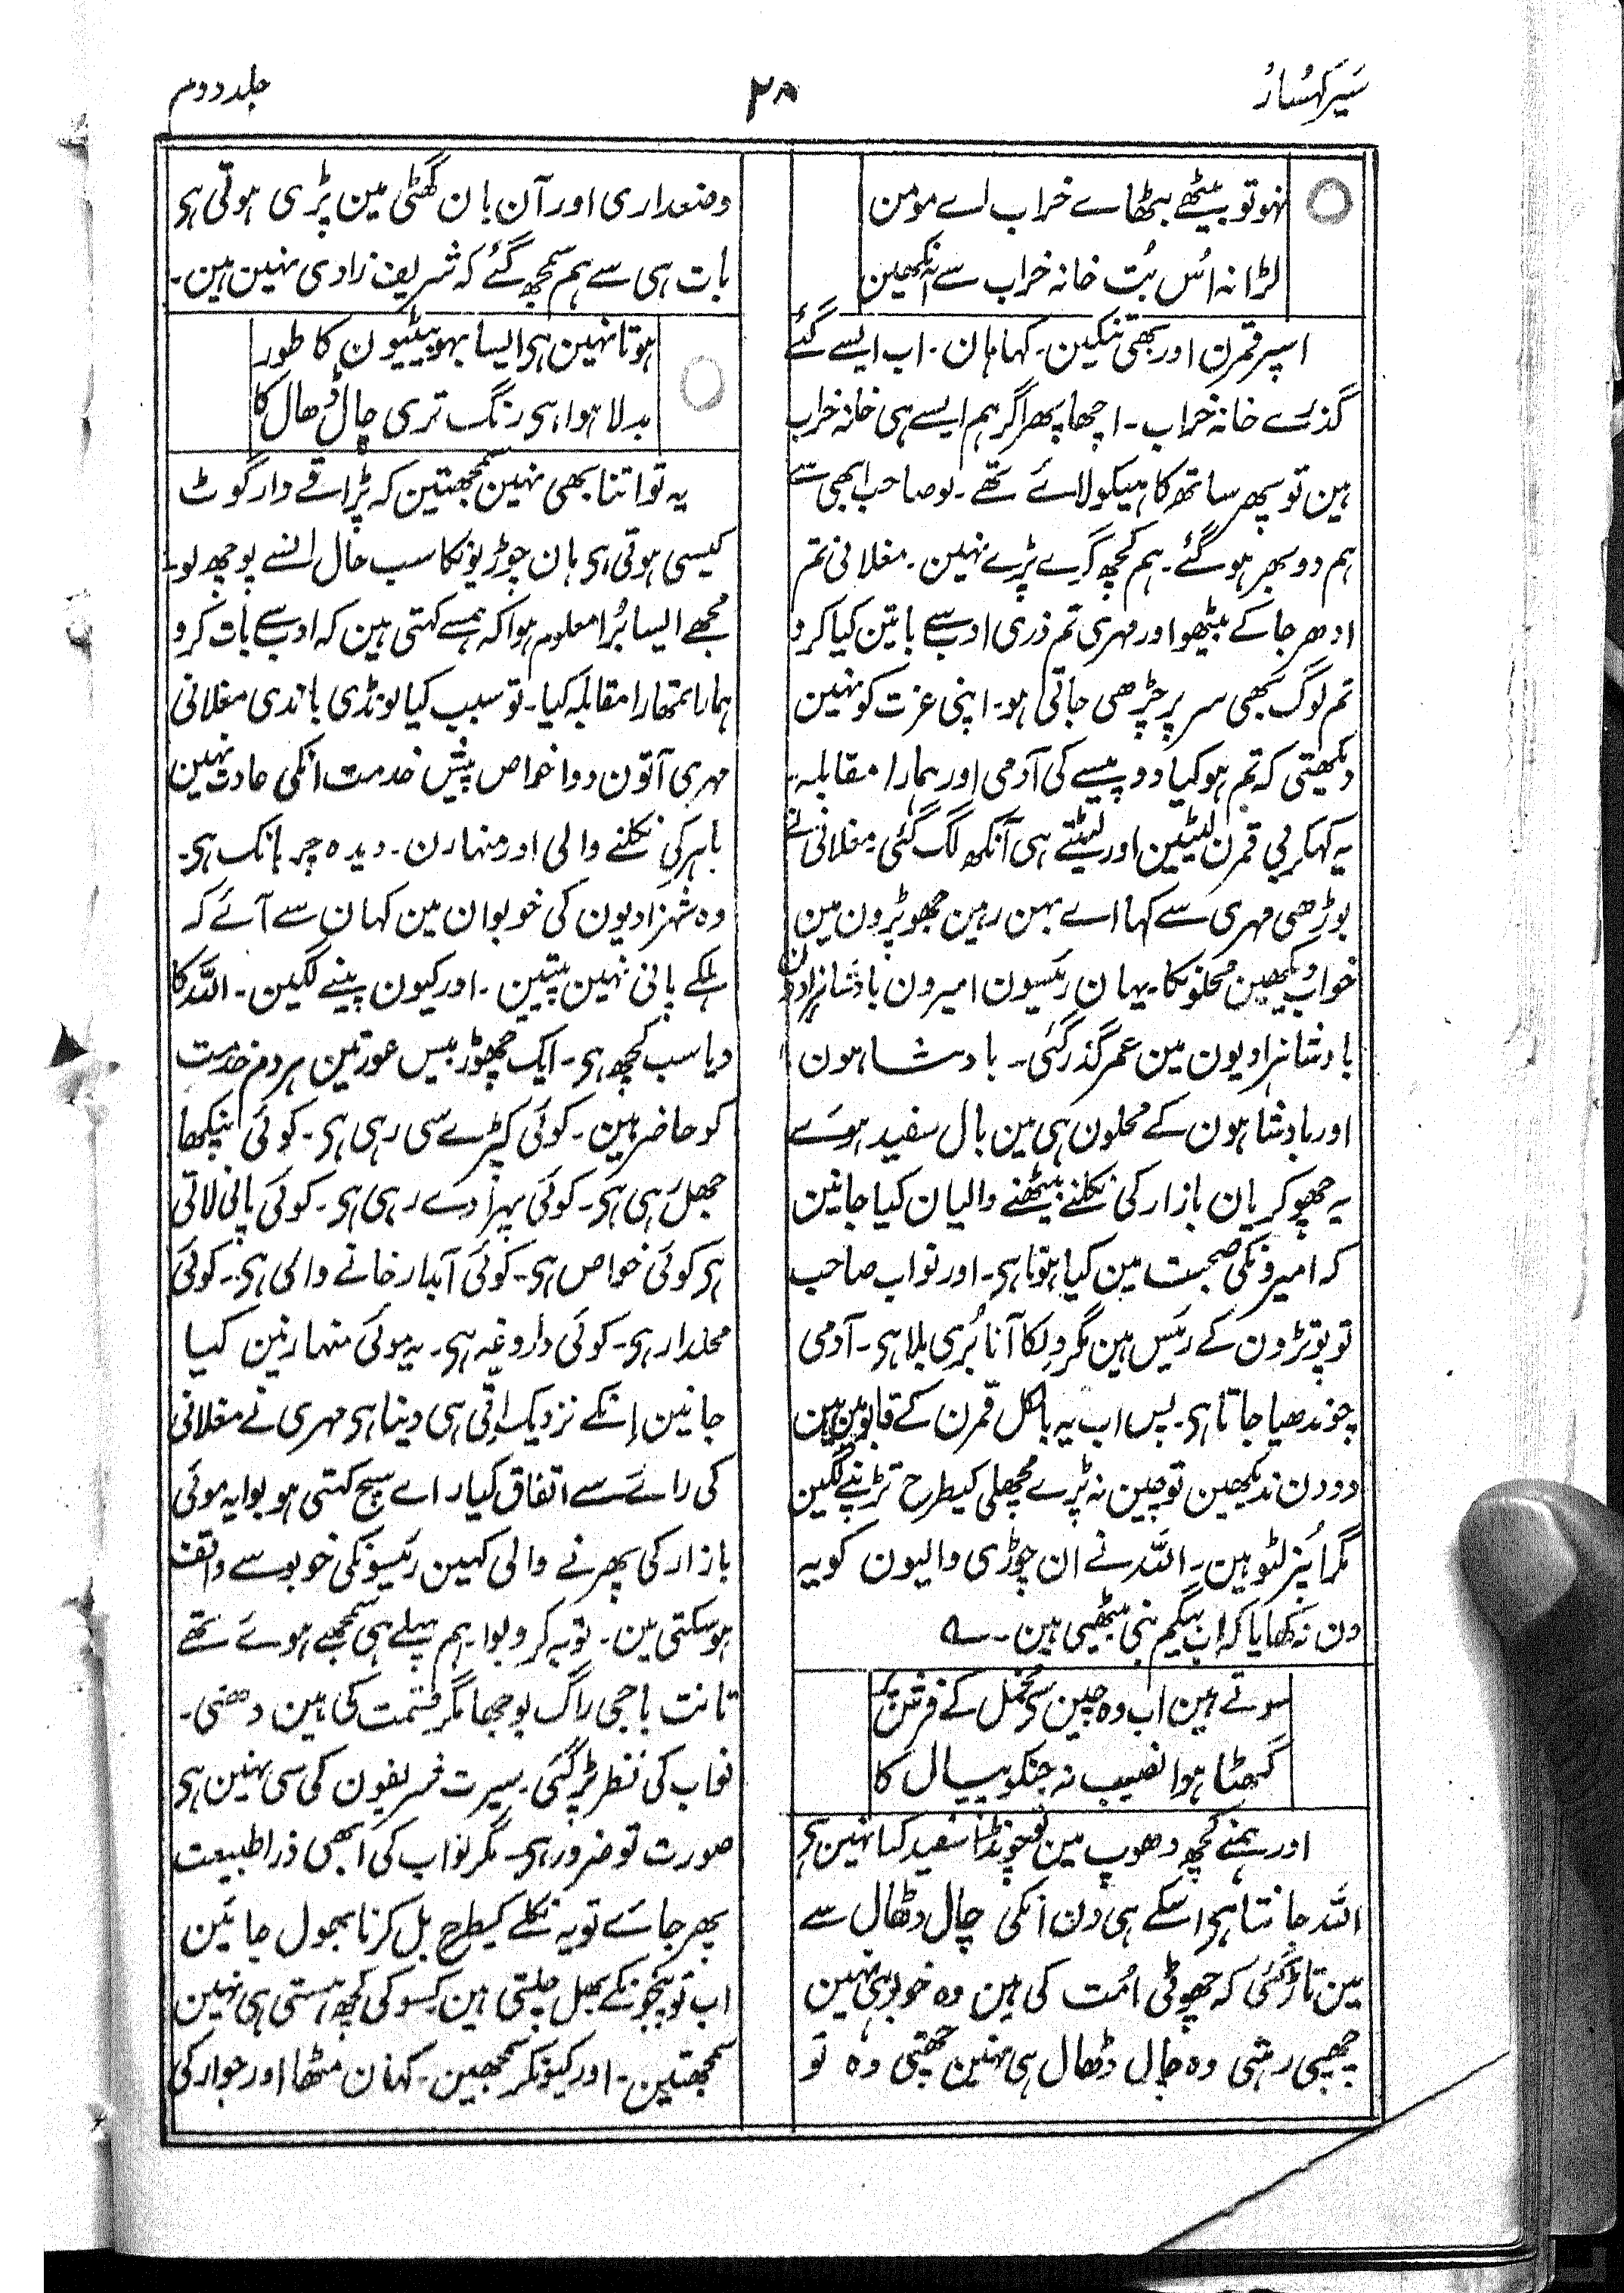 سَیرِ کہُسارْ
۲۸
جلد دوم
نہو تو بیٹھے بٹھاے خراب اے مومن
لڑا نہ اُس بُت خانہ خراب سے آنکھین
اسپر قمرن اور بھی تنکین۔ کہا ہان۔ اب ایسے گئے
گذرے خانہ خراب۔ اچھا پھر اگر ہم ایسے ہی خانہ خراب
ہین تو پھر ساتھ کاہیکو لائے تھے۔ لو صاحب ابھی سے
ہم دوبھر ہو گئے۔ ہم کچھ گرے پڑے نہین۔ مغلانی تم
ادھر جا کے بیٹھو اور مہری تم ذری ادب سے باتین کیا کرو
تم لوگ بھی سر پر چڑھی جاتی ہو۔ اپنی عزت کو نہین
دیکھتی کہ تم ہو کیا دو پیسے کی آدمی اور ہمارا مقابلہ۔
یہ کہکر بی قمرن لیٹین اور لیٹتے ہی آنکھ لگ گئی۔ مغلانی نے
بوڑھی مہری سے کہا اے بہن رہین جھوپڑون مین
خواب دیکھین محلونکا۔ یہان رئیسون امیرون بادشاہزادون
بادشاہزادیون مین عمر گذر گئی۔ بادشاہون
اور بادشاہون کے محلون ہی مین بال سفید ہوے
یہ چھوکریان بازار کی نکلنے بیٹھنے والیان کیا جانین
کہ امیرونکی صحبت مین کیا ہوتا ہی۔ اور نواب صاحب
تو پوتڑون کے رئیس ہین مگر دلکا آنا بُری بلا ہی۔ آدمی
چوندھیا جاتا ہی۔ پس اب یہ بالکل قمرن کے قابو مین ہین
دو دن ندیکھین تو چین نہ پڑے مچھلی کیطرح تڑپنے لگین
مگر اُنپر لٹو ہین۔ اللہ نے ان چوڑی والیون کو یہ
دن دکھایا کہ اب بیگم بنی بیٹھی ہین۔ ؎
سوتے ہین اب وہ چین سے مخمل کے فرش پر
گھٹا ہوا نصیب نہ جنکو پیال کا
اور ہمنے کچھ دھوپ مین تو چونڈا سفید کیا نہین ہی
اللہ جانتا ہی اسکے ہی دن انکی چال ڈھال سے
مین تاڑ گئی کہ چھوٹی اُمت کی ہین وہ خوبو ہی نہین
چھپی رہتی وہ چال ڈھال ہی نہین چھپتی وہ تو
وضعداری اور آن بان گھٹی مین پڑی ہوتی ہی
بات ہی سے ہم سمجھ گئے کہ شریف زادی نہین ہین۔
ہوتا نہین ہی ایسا بہو بیٹیون کا طور
بدلا ہوا ہی رنگ تری چال ڈھال کا
یہ تو اتنا بھی نہین سمجھتین کہ پڑاقے دار گوٹ
کیسی ہوتی ہی ہان چوڑیونکا سب حال انسے پوچھ لو۔
مجھے ایسا بُرا معلوم ہوا کہ ہمسے کہتی ہین کہ ادب سے بات کرو
ہمارا تمھارا مقابلہ کیا۔ تو سبب کیا لونڈی باندی مغلانی
مہری آتون ددا خواص پیش خدمت انکی عادت نہین
باہر کی نکلنے والی اور منہارن۔ دیدہ چر بانک ہی۔
وہ شہزادیون کی خوبو ان مین کہان سے آئے کہ
ہلکے پانی نہین پیتین۔ اور کیون پینے لگین۔ اللہ کا
دیا سب کچھ ہی۔ ایک چھوڑ بیس عورتین ہر دم خدمت
کو حاضر ہین۔ کوئی کپڑے سی رہی ہی۔ کوئی پنکھا
جھل رہی ہی۔ کوئی پہرا دے رہی ہی۔ کوئی پانی لاتی
ہی کوئی خواص ہی۔ کوئی آبدار خانے والی ہی۔ کوئی
محلدار ہی۔ کوئی داروغہ ہی۔ یہ موئی منہارنین کیا
جانین اِنکے نزدیک اتّی ہی دنیا ہی مہری نے مغلانی
کی راے سے اتفاق کیا۔ اے سچ کہتی ہو بوا یہ موئی
بازار کی پھرنے والی کہین رئیسونکی خوبو سے واقف
ہو سکتی ہین۔ توبہ کرو بوا۔ ہم پہلے ہی سمجھے ہوے تھے
تانت باجی راگ بوجھا مگر قسمت کی ہین دھنی۔
نواب کی نظر پڑ گئی۔ سیرت شریفون کی سی نہین ہی
صورت تو ضرور ہی۔ مگر نواب کی ابھی ذرا طبیعت
پھر جائے تو یہ نکلے کیطرح بل کرنا بھول جائین
اب تو پنجونکے بھل چلتی ہین کسو کی کچھ ہستی ہی نہین
سمجھتین۔ اور کیونکر سمجھین۔ کہان مٹھا اور جوار کی